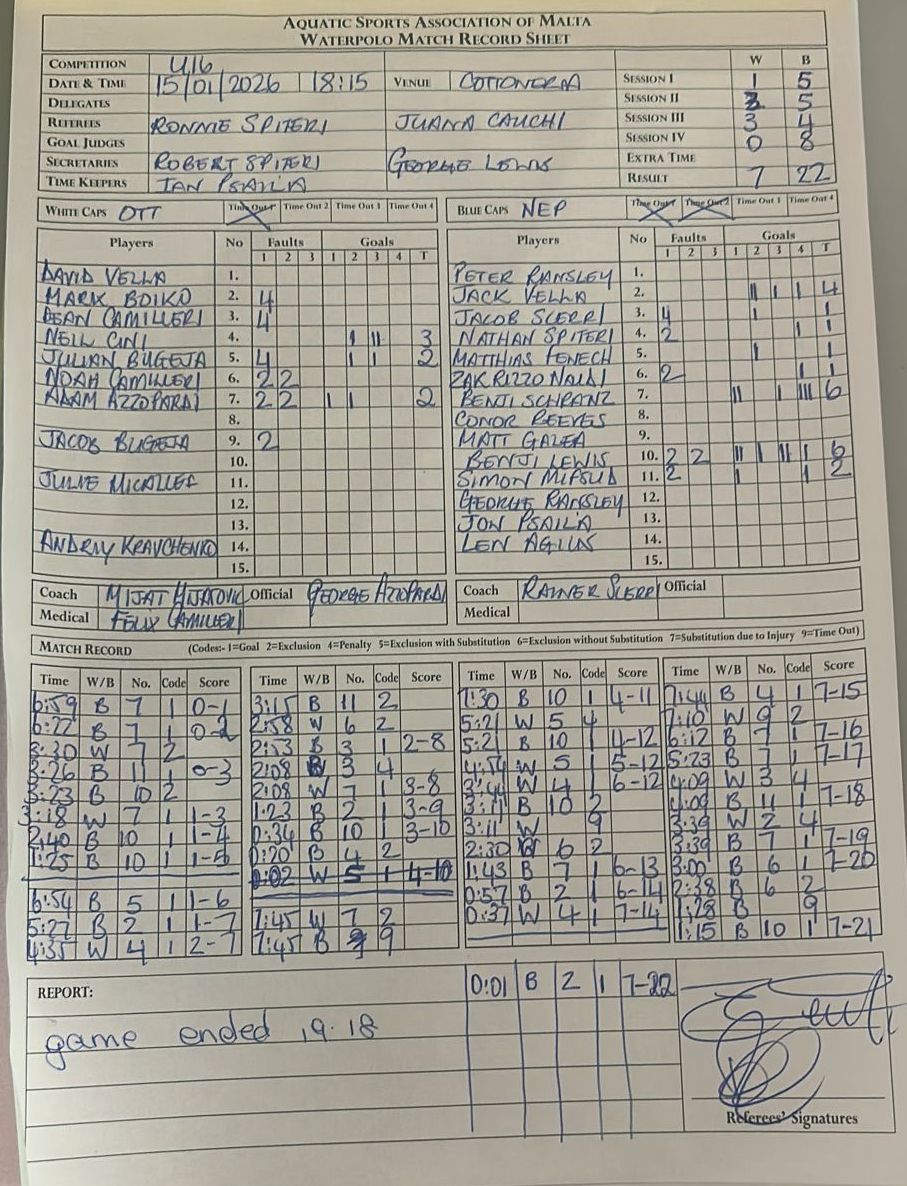 AQUATIC SPORTS ASSOCIATION OF MALTA
WATERPOLO MATCH RECORD SHEET
COMPETITION U16 W B
DATE & TIME 15/01/2026 18:15 VENUE COTTONERA SESSION I 1 5
DELEGATES SESSION II 3 5
REFEREES RONNIE SPITERI JUANA CAUCHI SESSION III 3 4
GOAL JUDGES SESSION IV 0 8
SECRETARIES ROBERT SPITERI GEORGE LEWIS EXTRA TIME
TIME KEEPERS IAN PSAILA RESULT 7 22
WHITE CAPS OTT Time Out 1 Time Out 2 Time Out 3 Time Out 4
Players No Faults Goals
1 2 3 1 2 3 4 T
DAVID VELLA 1.
MARK BOIKO 2. 4
DEAN CAMILLERI 3. 4
NEIL CINI 4. I II 3
JULIAN BUGEJA 5. 4 I I 2
NOAH CAMILLERI 6. 2 2
ADAM AZZOPARDI 7. 2 2 I I 2
8.
JACOB BUGEJA 9. 2
10.
JULIE MICALLEF 11.
12.
13.
ANDRIY KRAVCHENKO 14.
15.
Coach MIJAT Official GEORGE AZZOPARDI
Medical FELIX CAMILLERI
BLUE CAPS NEP Time Out 1 Time Out 2 Time Out 3 Time Out 4
Players No Faults Goals
1 2 3 1 2 3 4 T
PETER RANSLEY 1.
JACK VELLA 2. II I I 4
JACOB SCERRI 3. 4 I 1
NATHAN SPITERI 4. 2 I 1
MATTHIAS FENECH 5. I 1
ZAK RIZZO NAUDI 6. 2 I 1
BENJI SCHRANZ 7. II I III 6
CONOR REEVES 8.
MATT GALEA 9.
BENJI LEWIS 10. 2 2 II I II I 6
SIMON MIFSUD 11. 2 I I 2
GEORGE RANSLEY 12.
JON PSAILA 13.
LEN AGIUS 14.
15.
Coach RAINER SCERRI Official
Medical
MATCH RECORD (Codes:- 1=Goal 2=Exclusion 4=Penalty 5=Exclusion with Substitution 6=Exclusion without Substitution 7=Substitution due to Injury 9=Time Out)
Time W/B No. Code Score
6:59 B 7 1 0-1
6:22 B 7 1 0-2
3:30 W 7 2
3:26 B 11 1 0-3
3:23 B 10 2
3:18 W 7 1 1-3
2:40 B 10 1 1-4
1:25 B 10 1 1-5
6:54 B 5 1 1-6
5:27 B 2 1 1-7
4:35 W 4 1 2-7
Time W/B No. Code Score
3:15 B 11 2
2:58 W 6 2
2:53 B 3 1 2-8
2:08 B 3 4
2:08 W 7 1 3-8
1:23 B 2 1 3-9
0:34 B 10 1 3-10
0:20 B 4 2
0:02 W 5 1 4-10
7:45 W 7 2
7:45 B 9
Time W/B No. Code Score
7:30 B 10 1 4-11
5:21 W 5 4
5:21 B 10 1 4-12
4:54 W 5 1 5-12
3:44 W 4 1 6-12
3:11 B 10 2
3:11 W 9
2:30 W 6 2
1:43 B 7 1 6-13
0:57 B 2 1 6-14
0:37 W 4 1 7-14
Time W/B No. Code Score
7:44 B 4 1 7-15
7:10 W 9 2
6:12 B 7 1 7-16
5:23 B 7 1 7-17
4:09 W 3 4
4:09 B 11 1 7-18
3:39 W 2 4
3:39 B 7 1 7-19
3:00 B 6 1 7-20
2:38 B 6 2
1:28 B 9
1:15 B 10 1 7-21
0:01 B 2 1 7-22
REPORT:
game ended 19.18
Referees' Signatures